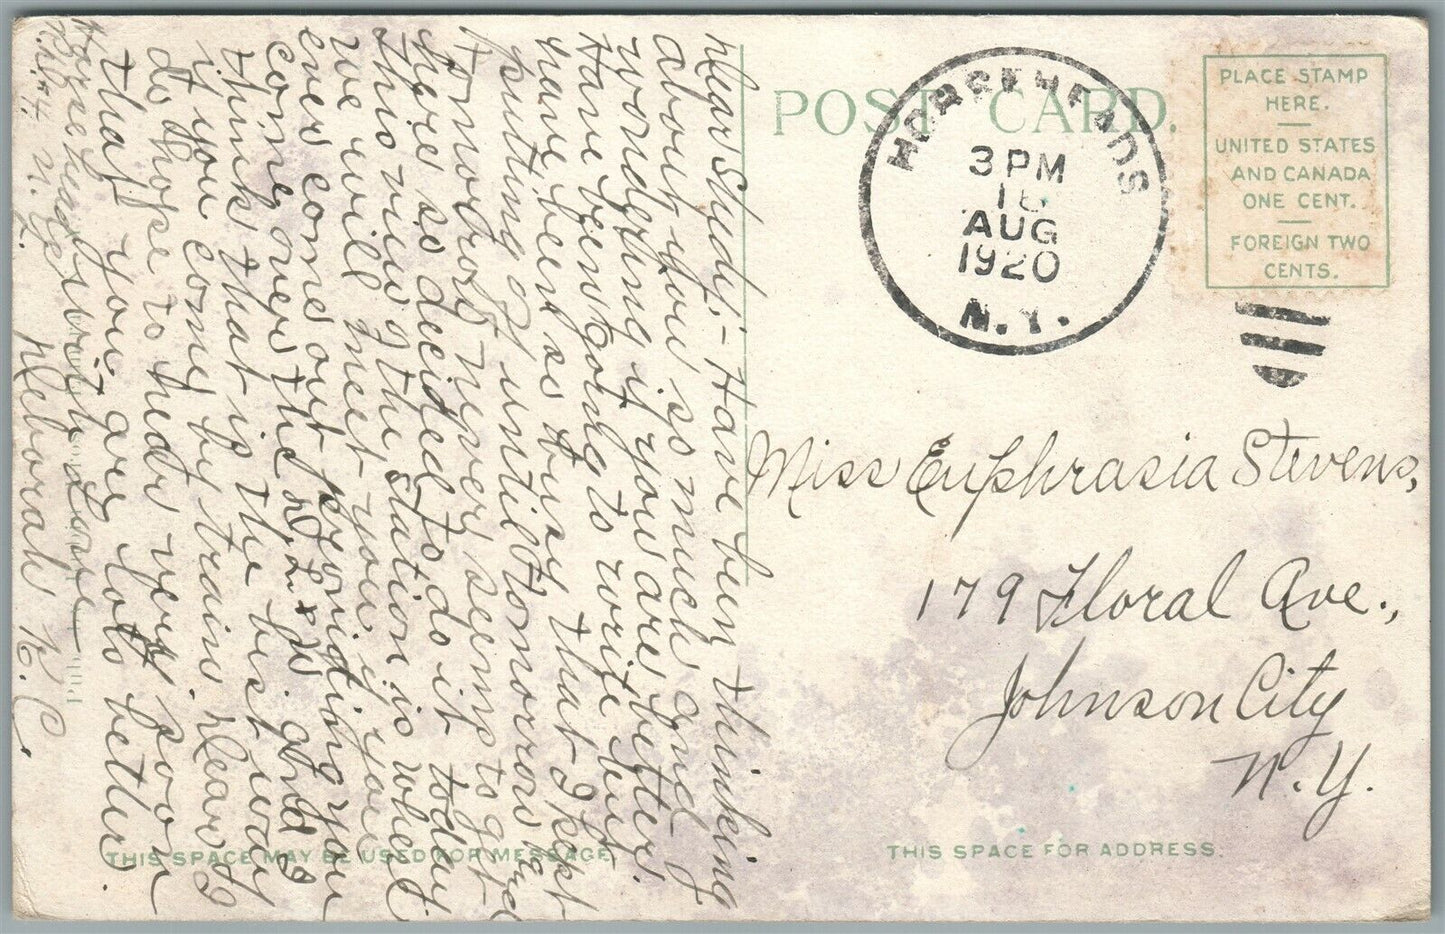 POST CARD.
HORSEHEADS
3 PM
AUG
1920
N.Y.
PLACE STAMP
HERE.
UNITED STATES
AND CANADA
ONE CENT.
FOREIGN TWO
CENTS.
Miss Euphrasia Stevens,
179 Floral Ave.,
Johnson City
N.Y.
THIS SPACE FOR ADDRESS.
THIS SPACE MAY BE USED FOR MESSAGE.
Dear Study;- Have been thinking
about you so much and
wondering if you are better.
Have been going to write but
have been so busy that I kept
putting it until tomorrow and
tomorrow never seems to get
here so decided to do it today.
This view of the station is where
we will meet you if you
ever come out providing you
come over the D. L. & W. and I
think that is the best way
if you come by train. Dear I
do hope to hear very soon
that you are lots better.
Horseheads with Love
N.Y. Deborah K. C.